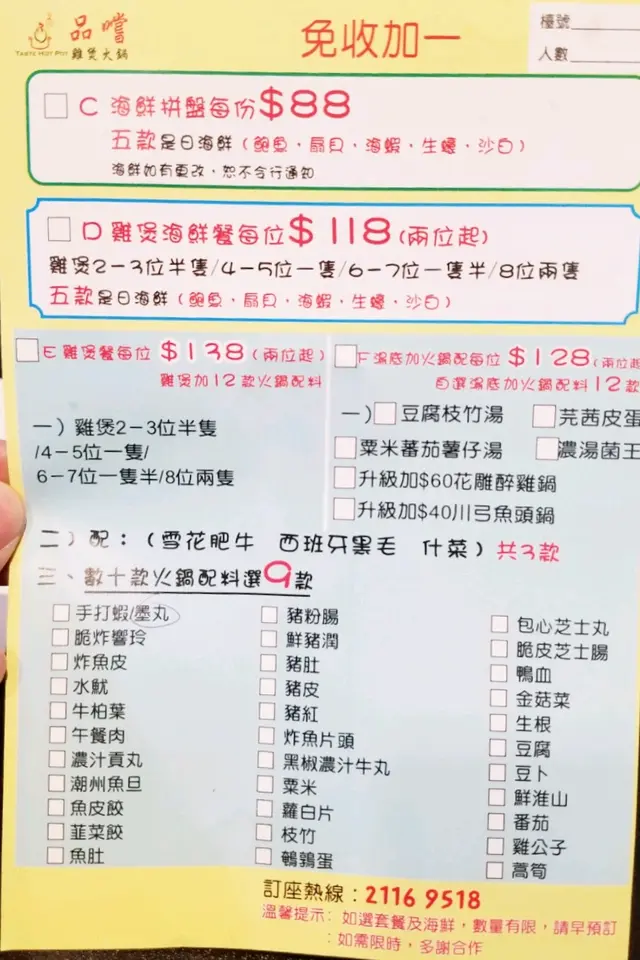 品嚐
TASTE HOT POT 雞煲火鍋
免收加一
檯號
人數
C 海鮮拼盤每份$88
五款是日海鮮（鮑魚・扇貝・海蝦・生蠔・沙白）
海鮮如有更改，恕不令行通知
D 雞煲海鮮餐每位$118(兩位起)
雞煲2-3位半隻/4-5位一隻/6-7位一隻半/8位兩隻
五款是日海鮮（鮑魚・扇貝・海蝦・生蠔・沙白）
E 雞煲餐每位 $138（兩位起）
雞煲加12款火鍋配料
一）雞煲2-3位半隻
/4-5位一隻/
6-7位一隻半/8位兩隻
F 湯底加火鍋配每位 $128(兩位起
自選湯底加火鍋配料12款
一）豆腐枝竹湯
芫茜皮蛋
粟米蕃茄薯仔湯
濃湯菌王
升級加$60花雕醉雞鍋
升級加$40川弓魚頭鍋
二）配：（雪花肥牛 西班牙黑毛 什菜）共3款
三、數十款火鍋配料選9款
手打蝦/墨丸
脆炸響玲
炸魚皮
水魷
牛柏葉
午餐肉
濃汁貢丸
潮州魚旦
魚皮餃
韮菜餃
魚肚
豬粉腸
鮮豬潤
豬肚
豬皮
豬紅
炸魚片頭
黑椒濃汁牛丸
粟米
蘿白片
枝竹
鵪鶉蛋
包心芝士丸
脆皮芝士腸
鴨血
金菇菜
生根
豆腐
豆卜
鮮淮山
番茄
雞公子
蒿筍
訂座熱線：2116 9518
溫馨提示：如選套餐及海鮮，數量有限，請早預訂
：如需限時，多謝合作